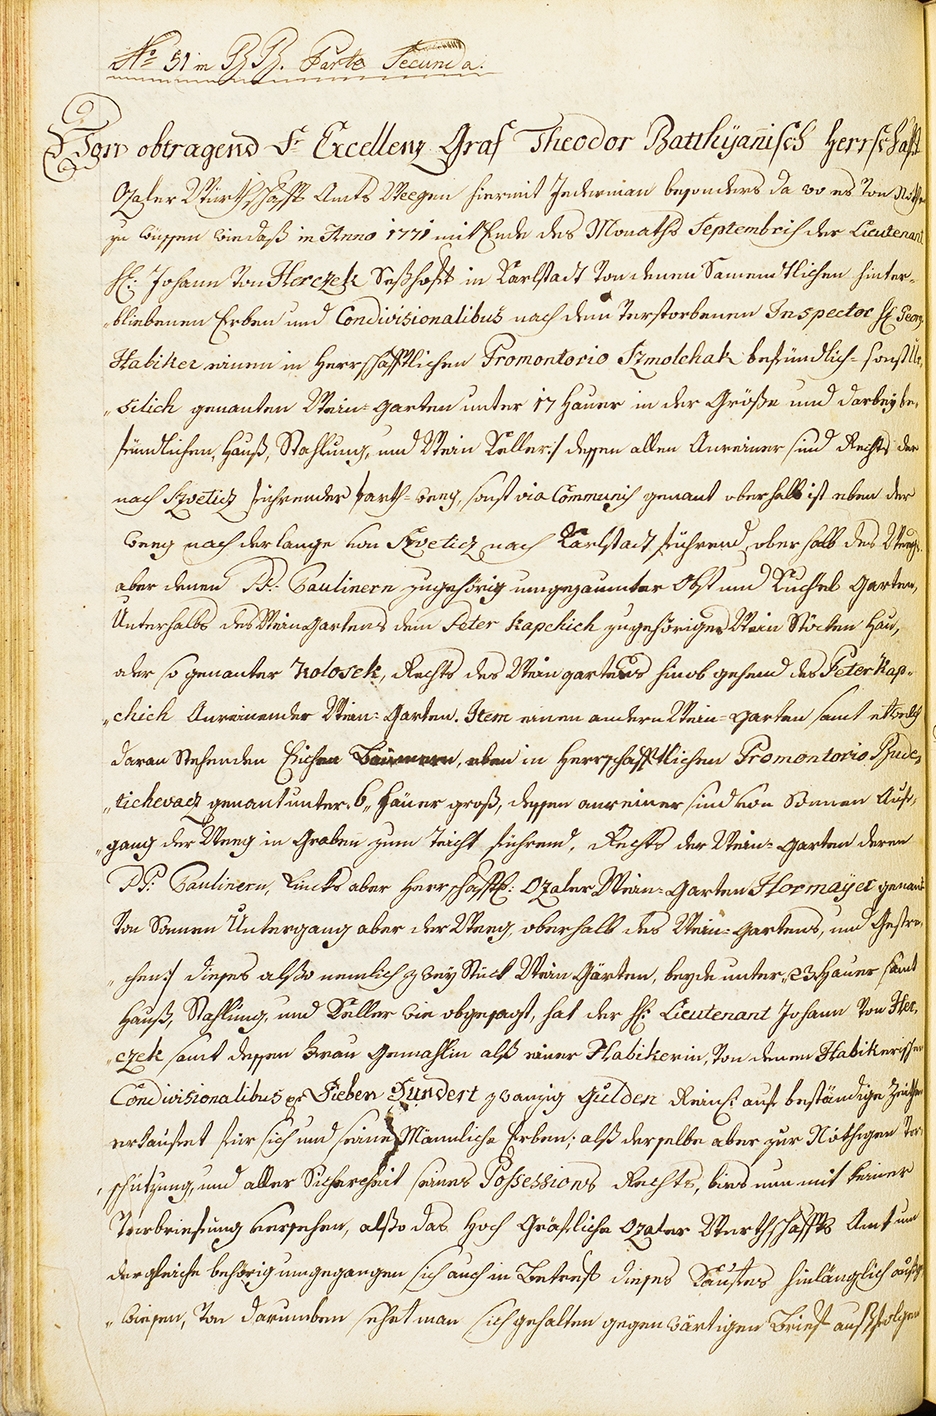 No 51 in B B. Parte Secunda.
Von obtragend Sr Excellenz Graf Theodor Batthÿanisch Herrschaft
Ozaler Würthschaffts Amts Weegen hiermit Jederman besonders da wo es von Nöthen
zu wüssen wie daß in Anno 1771 mit Ende des Monaths Septembris der Lieutenant
H: Johann von Herczek Seßhaft in Karlstadt von denen Samentlichen hinter-
„bliebenen Erben und Condivisionalibus nach dem Verstorbenen Inspector H: Georg
Habiker einen in Herrschafftlichen Promontorio Szmolchak befündlich- sonst
„silich genanten Wein-garten unter 17 Hauer in der Größe und darbey be„
fündlichen Hauß, Stahlung, und Wein Keller :/ dessen allen Anreiner sind Rechts der
nach Szveticz führender farth-weeg, sonst via Communis genant oberhalb ist eben der
weeg nach der lange von Szveticz nach Karlstadt führend, oberhalb des Weegs
aber denen PP: Paulinern zugehörig umgezaunter Obst und Kuchel Garten,
Unterhalb des WeinGartens dem Peter Kapchich zugehöriger Wein Stöcken Hau,
oder so genanter Kolosek, Rechts des Weingartens hinob gehend des Peter Kap-
„chich Anreinender Wein-Garten. Item einen andern Wein-garten samt etwelch
daran Stehenden Eichen Bäumern, eben in Herrschafftlichen Promontorio
„tichevacz genant unter „6„ Häuer groß, dessen anreiner sind von Sonnen Auf„
„gang der Weeg in Graben zum Teicht führend, Rechts der Wein-Garten deren
PP: Paulinern, Lincks aber Herrschafftl: Ozaler Wein-Garten Hormaÿer genant
von Sonnen Untergang aber der Weeg, oberhalb des Wein-gartens, und Gestra„
„chen :/ dieses also nemlich zwey Stück Wein Gärten, beyde unter „23„ Hauer samt
Hauß, Stahlung, und Keller wie obgesagt, hat der H: Lieutenant Johann von Her„
„czek samt dessen Frau Gemahlin alß einer Habikerin, von denen Habikerischen
Condivisionalibus pr Sieben Hundert zwanzig Gulden Reins: auf beständige Zeithen
erkaufet für sich und seine Männliche Erben; alß derselbe aber zur Nöthigen Ver„
„schützung, und aller Sicherheit seines Possessions Rechts, bies nun mit keiner
Verbriefung versehen, also das Hoch Gräfliche Ozaler Würthschaffts Amt um
dergleiche behörig umgegangen sich auch in Betreff dieses Kaufes hinlänglich
„wiesen, von darumben sehet man sich gehalten gegenwärtigen Brief